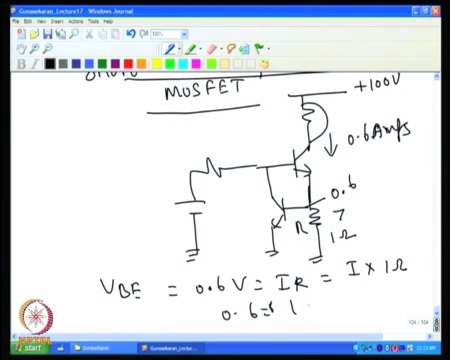 Gunasekaran_Lecture17 - Windows Journal
File Edit View Insert Actions Tools Help
MOSFET
+100V
0.6 Amps
0.6
R
1Ω
VBE = 0.6 V = I R = I × 1Ω
0.6 = I
104 / 104
NPTEL
start
Gunasekaran
Gunasekaran_Lectu...